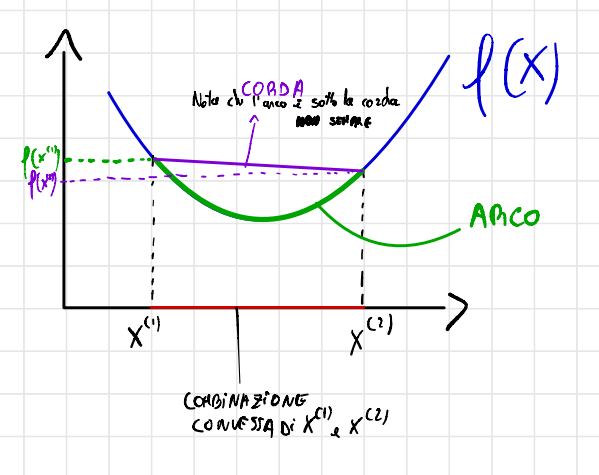 f(x)
CORDA
Nota che l'arco è sotto la corda
NON SEMPRE
f(x⁽¹⁾)
f(x⁽²⁾)
ARCO
x⁽¹⁾
x⁽²⁾
COMBINAZIONE
CONVESSA DI x⁽¹⁾ e x⁽²⁾